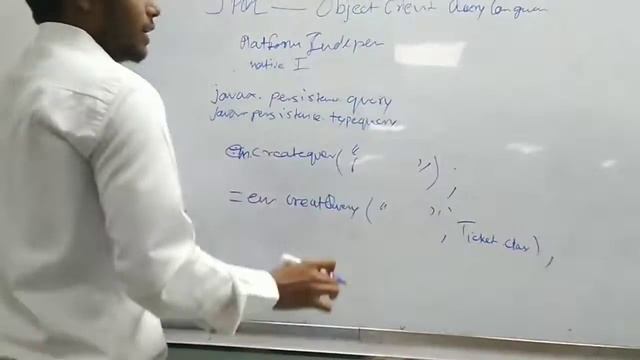 JPQL — Object Orient Query Languen
Platform Indepen
native I
javax. persistence query
javax persistence. typequery
em.createquer( " " ) ;
= em creatQuery ( " "
, Ticket.class) ;